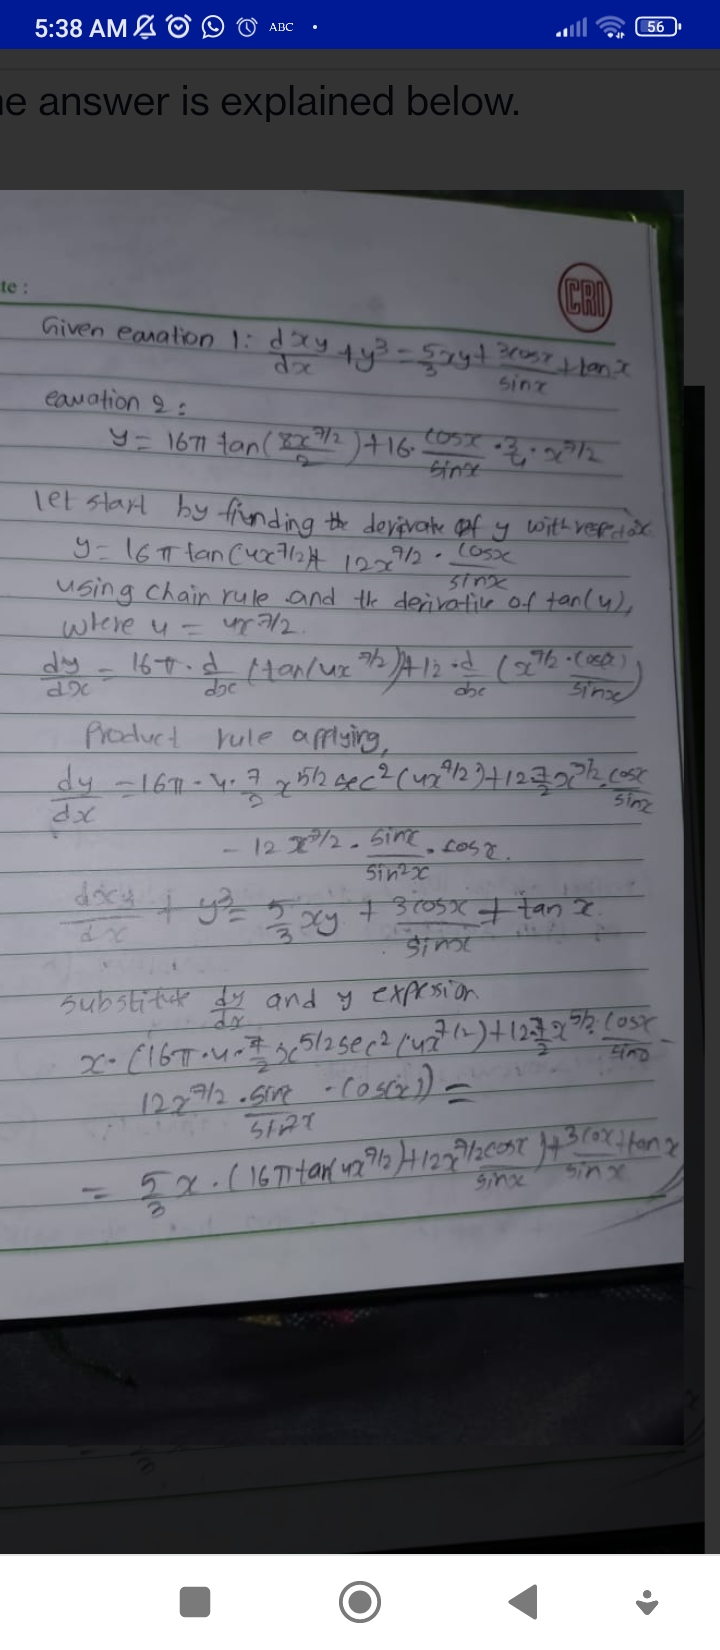 5:38 AM ABC 56
e answer is explained below.
te :
CRI
Given eauation 1: dxy/dx + y³ = 5/3 xy + 3cosx/sinx + tanx
eauation 2:
y = 16π tan(8x^7/2/2) + 16 · cosx/sinx · 3/4 · x^7/2
let start by finnding the derivate of y with respect
y = 16π tan(4x^7/2)+ 12x^7/2 · cosx/sinx
using chain rule and the derivative of tan(u),
where u = 4x^7/2.
dy/dx = 16π · d/dx (tan(4x^7/2))+12 · d/dx (x^7/2 · cosx/sinx)
Product rule applying,
dy/dx = 16π · 4 · 7/2 x^5/2 sec²(4x^7/2) + 12 · 7/2 x^5/2 · cosx/sinx
- 12 x^7/2 · sinx/sin²x · cosx.
dxy/dx + y³ = 5/3 xy + 3cosx/sinx + tanx
substitute dy/dx and y expression
x · (16π · 4 · 7/2 x^5/2 sec²(4x^7/2) + 12 · 7/2 x^5/2 · cosx/sinx -
12x^7/2 · sinx/sin²x · cos(x)) =
= 5/3 x · (16π tan(4x^7/2)+12x^7/2 cosx/sinx) + 3cosx/sinx + tanx